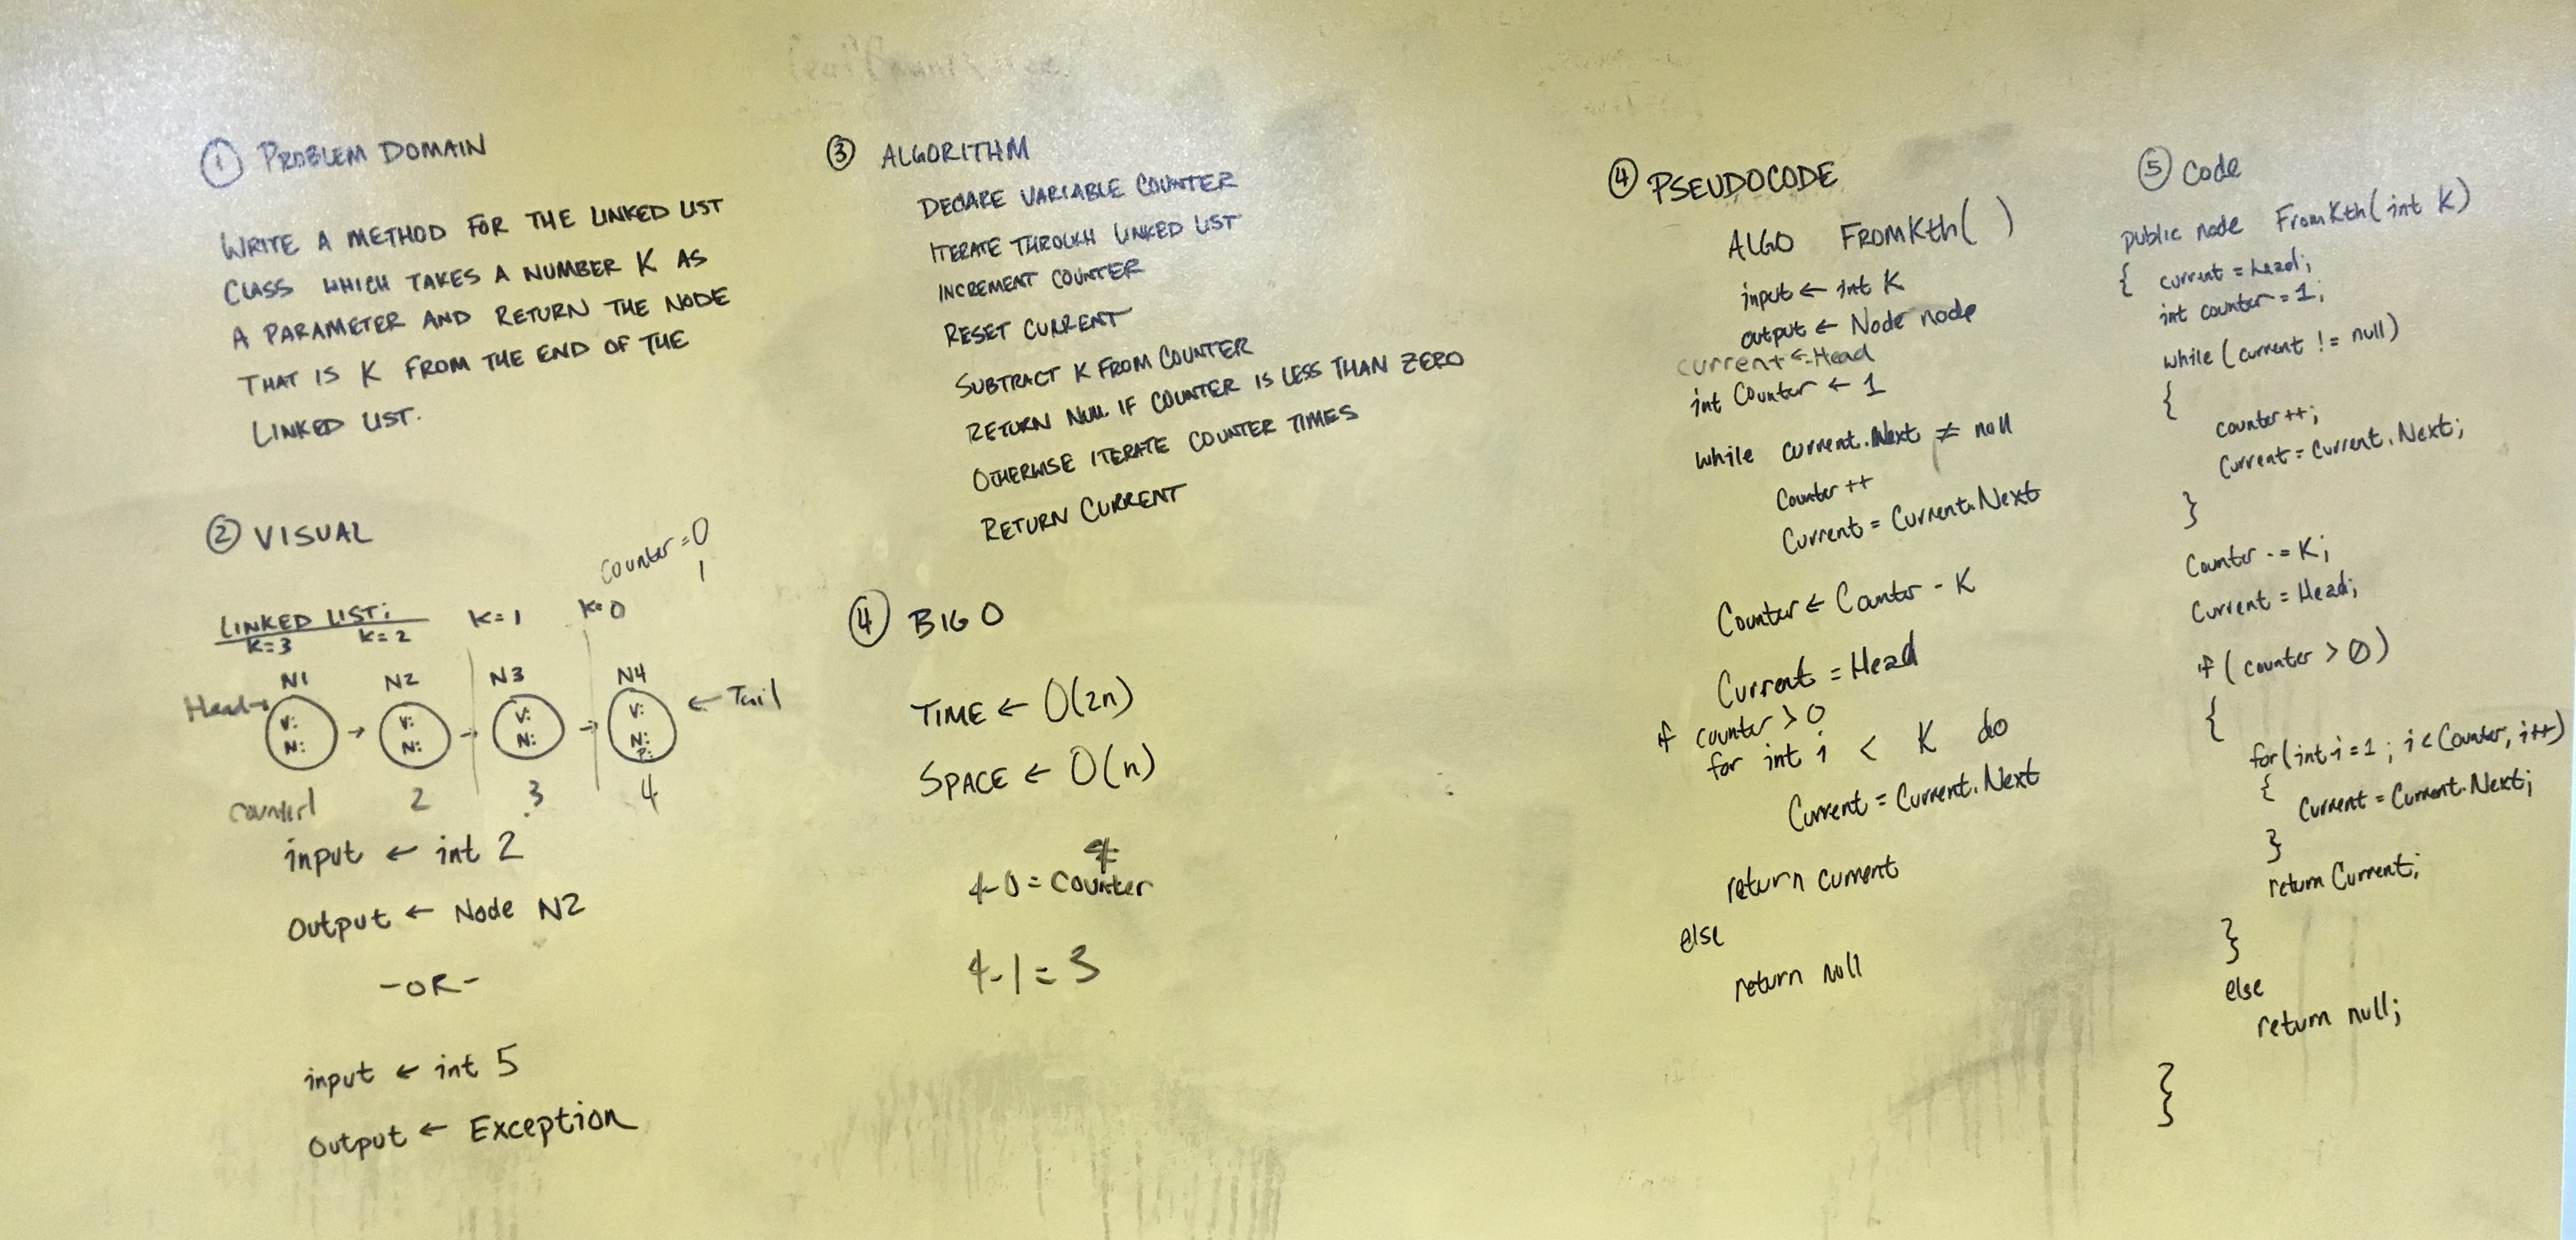 ① PROBLEM DOMAIN
WRITE A METHOD FOR THE LINKED LIST
CLASS WHICH TAKES A NUMBER K AS
A PARAMETER AND RETURN THE NODE
THAT IS K FROM THE END OF THE
LINKED LIST.
② VISUAL
Counter = 0
1
LINKED LIST:
K=1
K=0
K=3
K=2
N1
N2
N3
N4
Head→
V:
N:
V:
N:
V:
N:
V:
N:
P:
← Tail
counter 1
2
3
4
input ← int 2
Output ← Node N2
-OR-
input ← int 5
Output ← Exception
③ ALGORITHM
DECLARE VARIABLE COUNTER
ITERATE THROUGH LINKED LIST
INCREMENT COUNTER
RESET CURRENT
SUBTRACT K FROM COUNTER
RETURN NULL IF COUNTER IS LESS THAN ZERO
OTHERWISE ITERATE COUNTER TIMES
RETURN CURRENT
④ BIG O
TIME ← O(2n)
SPACE ← O(n)
4
4-0 = Counter
4-1 = 3
④ PSEUDOCODE
ALGO FROMKth( )
input ← int K
output ← Node node
current ← Head
int Counter ← 1
while current.Next ≠ null
Counter ++
Current = Current.Next
Counter ← Counter - K
Current = Head
if counter > 0
for int i < K do
Current = Current.Next
return current
else
return null
⑤ Code
public node FromKth(int K)
{ current = head;
int counter = 1;
while (current != null)
{
counter ++;
Current = Current.Next;
}
Counter -= K;
Current = Head;
if (counter > 0)
{
for(int i = 1 ; i < Counter, i++)
{
Current = Current.Next;
}
return Current;
}
else
return null;
}